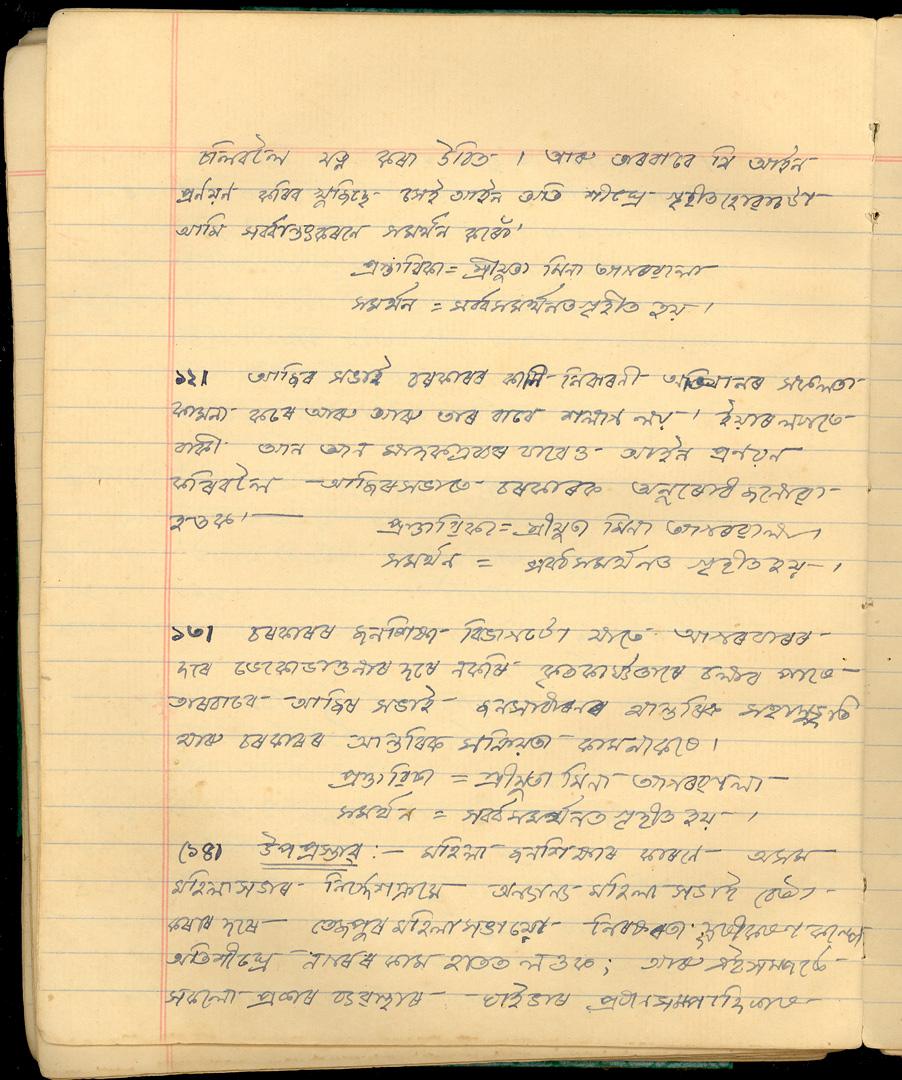 চলিবলৈ যত্ন কৰা উচিত । আৰু তাৰবাবে যি আইন
প্ৰণয়ন কৰিব খুজিছে সেই আইন অতি শীঘ্ৰে গৃহীত হোৱাটো
আমি সৰ্ব্বান্তঃকৰণে সমৰ্থন কৰোঁ ।
প্ৰস্তাৱিকা = শ্ৰীযুতা মিনা আগৰৱালা
সমৰ্থন = সৰ্ব্বসমৰ্থনত গৃহীত হয় ।
১২। আজিৰ সভাই চৰকাৰৰ কানি নিবাৰনী অভিযানৰ সফলতা
কামনা কৰে আৰু তাৰ বাবে শলাগ লয় । ইয়াৰ লগতে
বাকী আন আন মাদকদ্ৰব্যৰ বাবেও আইন প্ৰণয়ন
কৰিবলৈ আজিৰ সভাতে চৰকাৰক অনুৰোধ জনোৱা
হওক ।
প্ৰস্তাৱিকা = শ্ৰীযুতা মিনা আগৰৱালা
সমৰ্থন = সৰ্ব্বসমৰ্থনত গৃহীত হয় ।
১৩। চৰকাৰৰ জনশিক্ষা বিভাগটো যাতে আগৰবাৰৰ
দৰে ভেকোভাওনাৰ দৰে নকৰি কৃতকাৰ্য্যতাৰে চলাব পাৰে
তাৰবাবে আজিৰ সভাই জনসাধাৰনৰ আন্তৰিক সহানুভূতি
আৰু চৰকাৰৰ আন্তৰিক সক্ৰিয়তা কামনা কৰে ।
প্ৰস্তাৱিকা = শ্ৰীযুতা মিনা আগৰৱালা
সমৰ্থন = সৰ্ব্বসমৰ্থনত গৃহীত হয় ।
(১৪) উপপ্ৰস্তাৱ :- মহিলা জনশিক্ষাৰ কাৰণে অসম
মহিলা সভাৰ নিৰ্দ্দেশক্ৰমে অন্যান্য মহিলা সভাই
কৰাৰ দৰে তেজপুৰ মহিলা সভায়ো নিৰক্ষৰতা
অতিশীঘ্ৰে কাম হাতত লওক ; আৰু
সকলো প্ৰকাৰ ব্যৱস্থাৰ